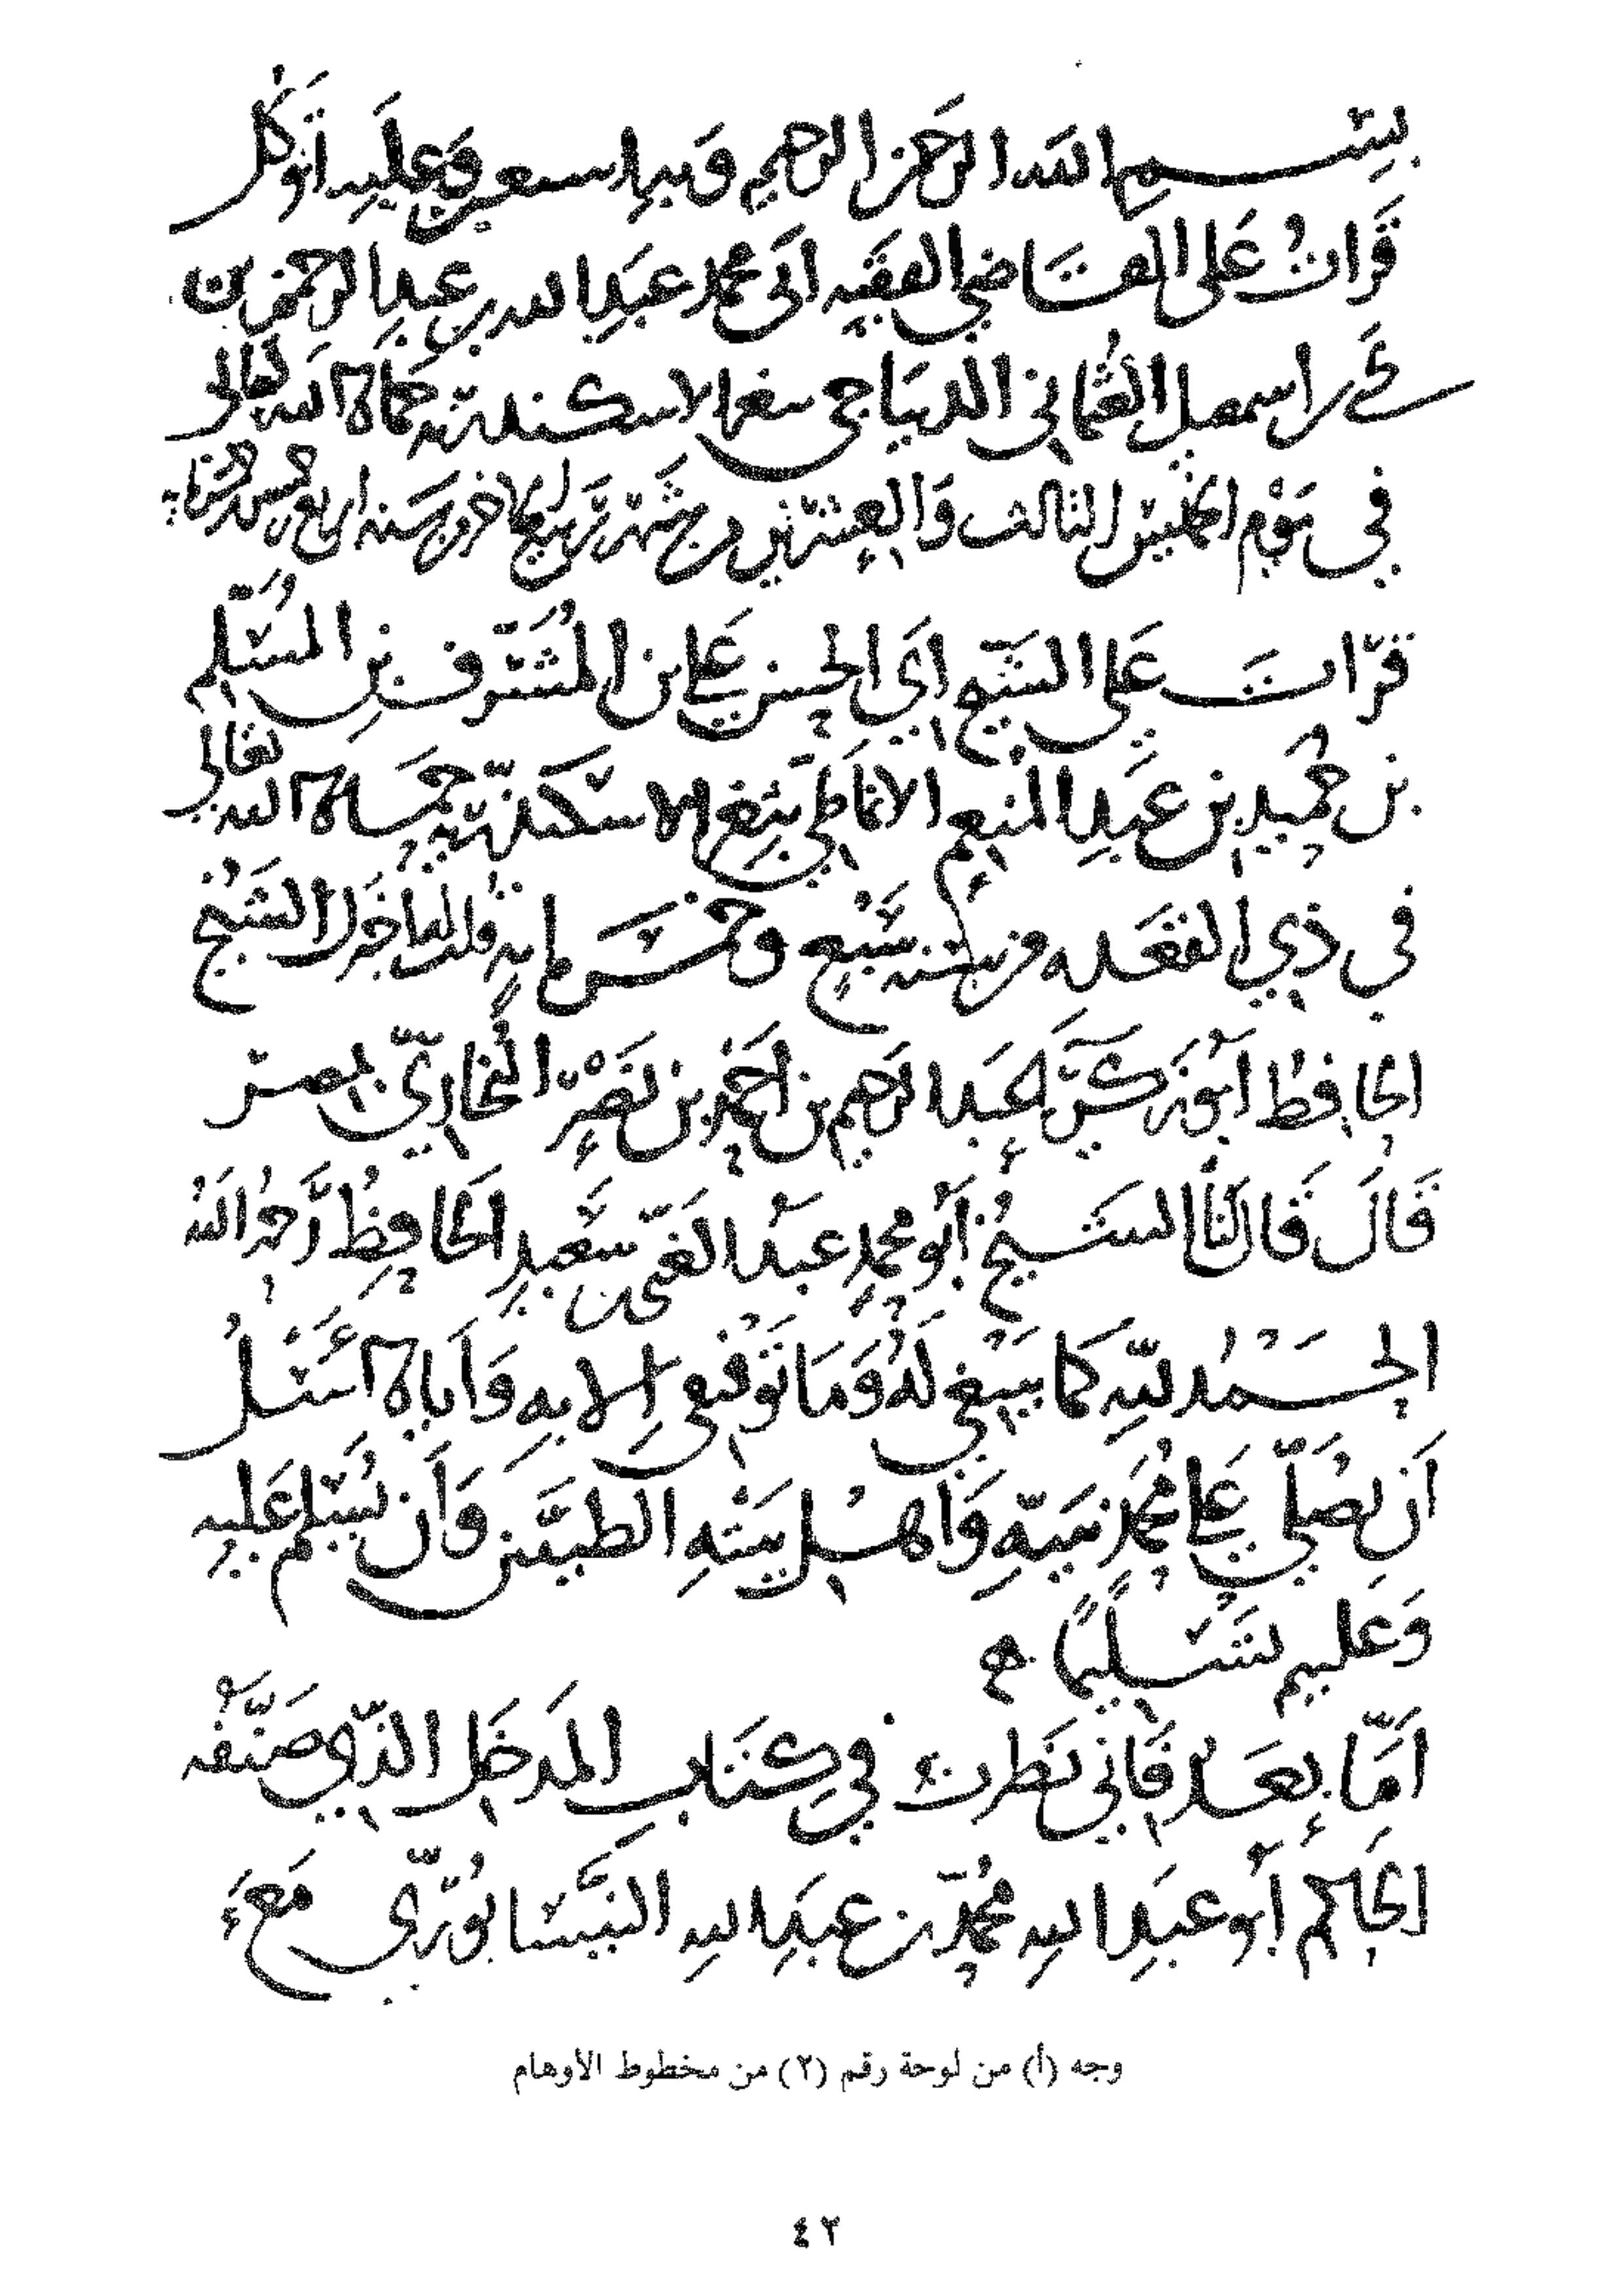 بسم الله الرحمن الرحيم وبه استعين وعليه اتوكل
قرات على القاضي الفقيه ابي محمد عبد الله بن عبد الرحمن بن
يحيى بن اسمعيل العثماني الديباجي بثغر الاسكندرية حماه الله تعالى
في يوم الخميس الثالث والعشرين من شهر ربيع الاخر من سنة اربع
قرات على الشيخ ابي الحسن علي بن المشرف بن المسلم
بن حميد بن عبد المنعم الانماطي بثغر الاسكندرية حماه الله تعالى
في ذي القعده من سنه سبع وخمس مايه قلت له اخبرك الشيخ
الحافظ أبو زكريا عبد الرحيم بن احمد بن نصر البخاري بمصر
قال قال لنا الشيخ أبو محمد عبد الغني بن سعيد الحافظ رحمه الله
الحمد لله كما ينبغي له وما توفيقي إلا به وإياه أسئل
أن يصلي على محمد نبيه وأهل بيته الطيبين وأن يسلم عليه
وعليهم تسليما
أما بعد فإني نظرت في كتاب المدخل الذي صنفه
الحاكم أبو عبد الله محمد بن عبد الله النيسابوري
وجه (أ) من لوحة رقم (٢) من مخطوط الأوهام
٤٢